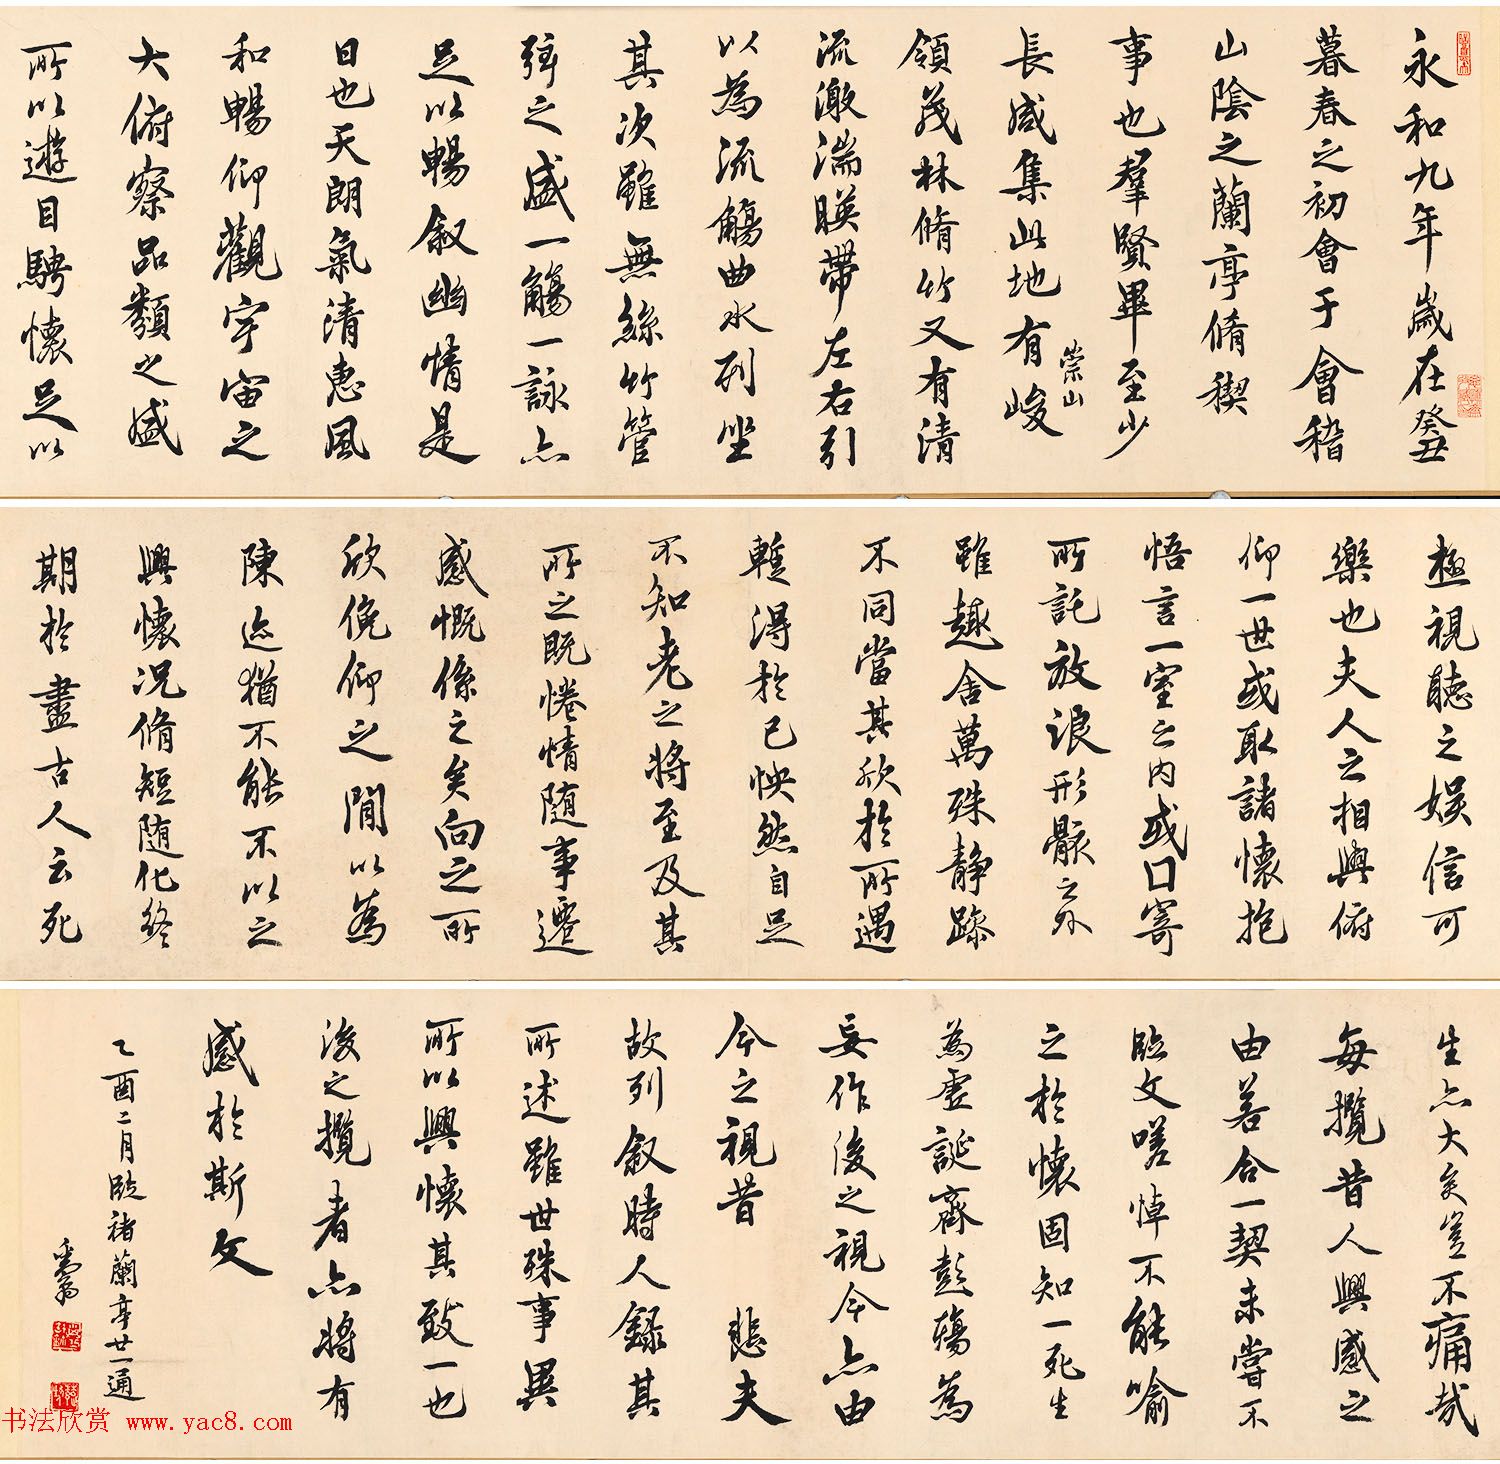 永和九年歲在癸丑
暮春之初會于會稽
山陰之蘭亭脩稧
事也羣賢畢至少
長咸集此地有峻
崇山
領茂林脩竹又有清
流激湍暎帶左右引
以為流觴曲水列坐
其次雖無絲竹管
弦之盛一觴一詠亦
足以暢叙幽情是
日也天朗氣清惠風
和暢仰觀宇宙之
大俯察品類之盛
所以遊目騁懷足以
極視聽之娛信可
樂也夫人之相與俯
仰一世或取諸懷抱
悟言一室之內或因寄
所託放浪形骸之外
雖趣舍萬殊靜躁
不同當其欣於所遇
暫得於己怏然自足
不知老之將至及其
所之既惓情隨事遷
感慨係之矣向之所
欣俛仰之閒以為
陳迹猶不能不以之
興懷況脩短隨化終
期於盡古人云死
生亦大矣豈不痛哉
每攬昔人興感之
由若合一契未嘗不
臨文嗟悼不能喻
之於懷固知一死生
為虛誕齊彭殤為
妄作後之視今亦由
今之視昔 悲夫
故列叙時人錄其
所述雖世殊事異
所以興懷其致一也
後之攬者亦將有
感於斯文
乙酉二月臨褚蘭亭廿一通
书法欣赏 www.yac8.com